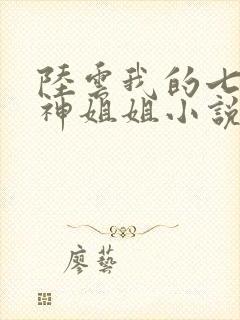 陸雲我的七
神姐姐小說
廖藝